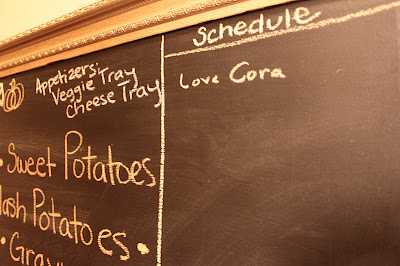 Appetizers:
Veggie Tray
Cheese Tray
• Sweet Potatoes
Potatoes
•
Schedule
Love Cora